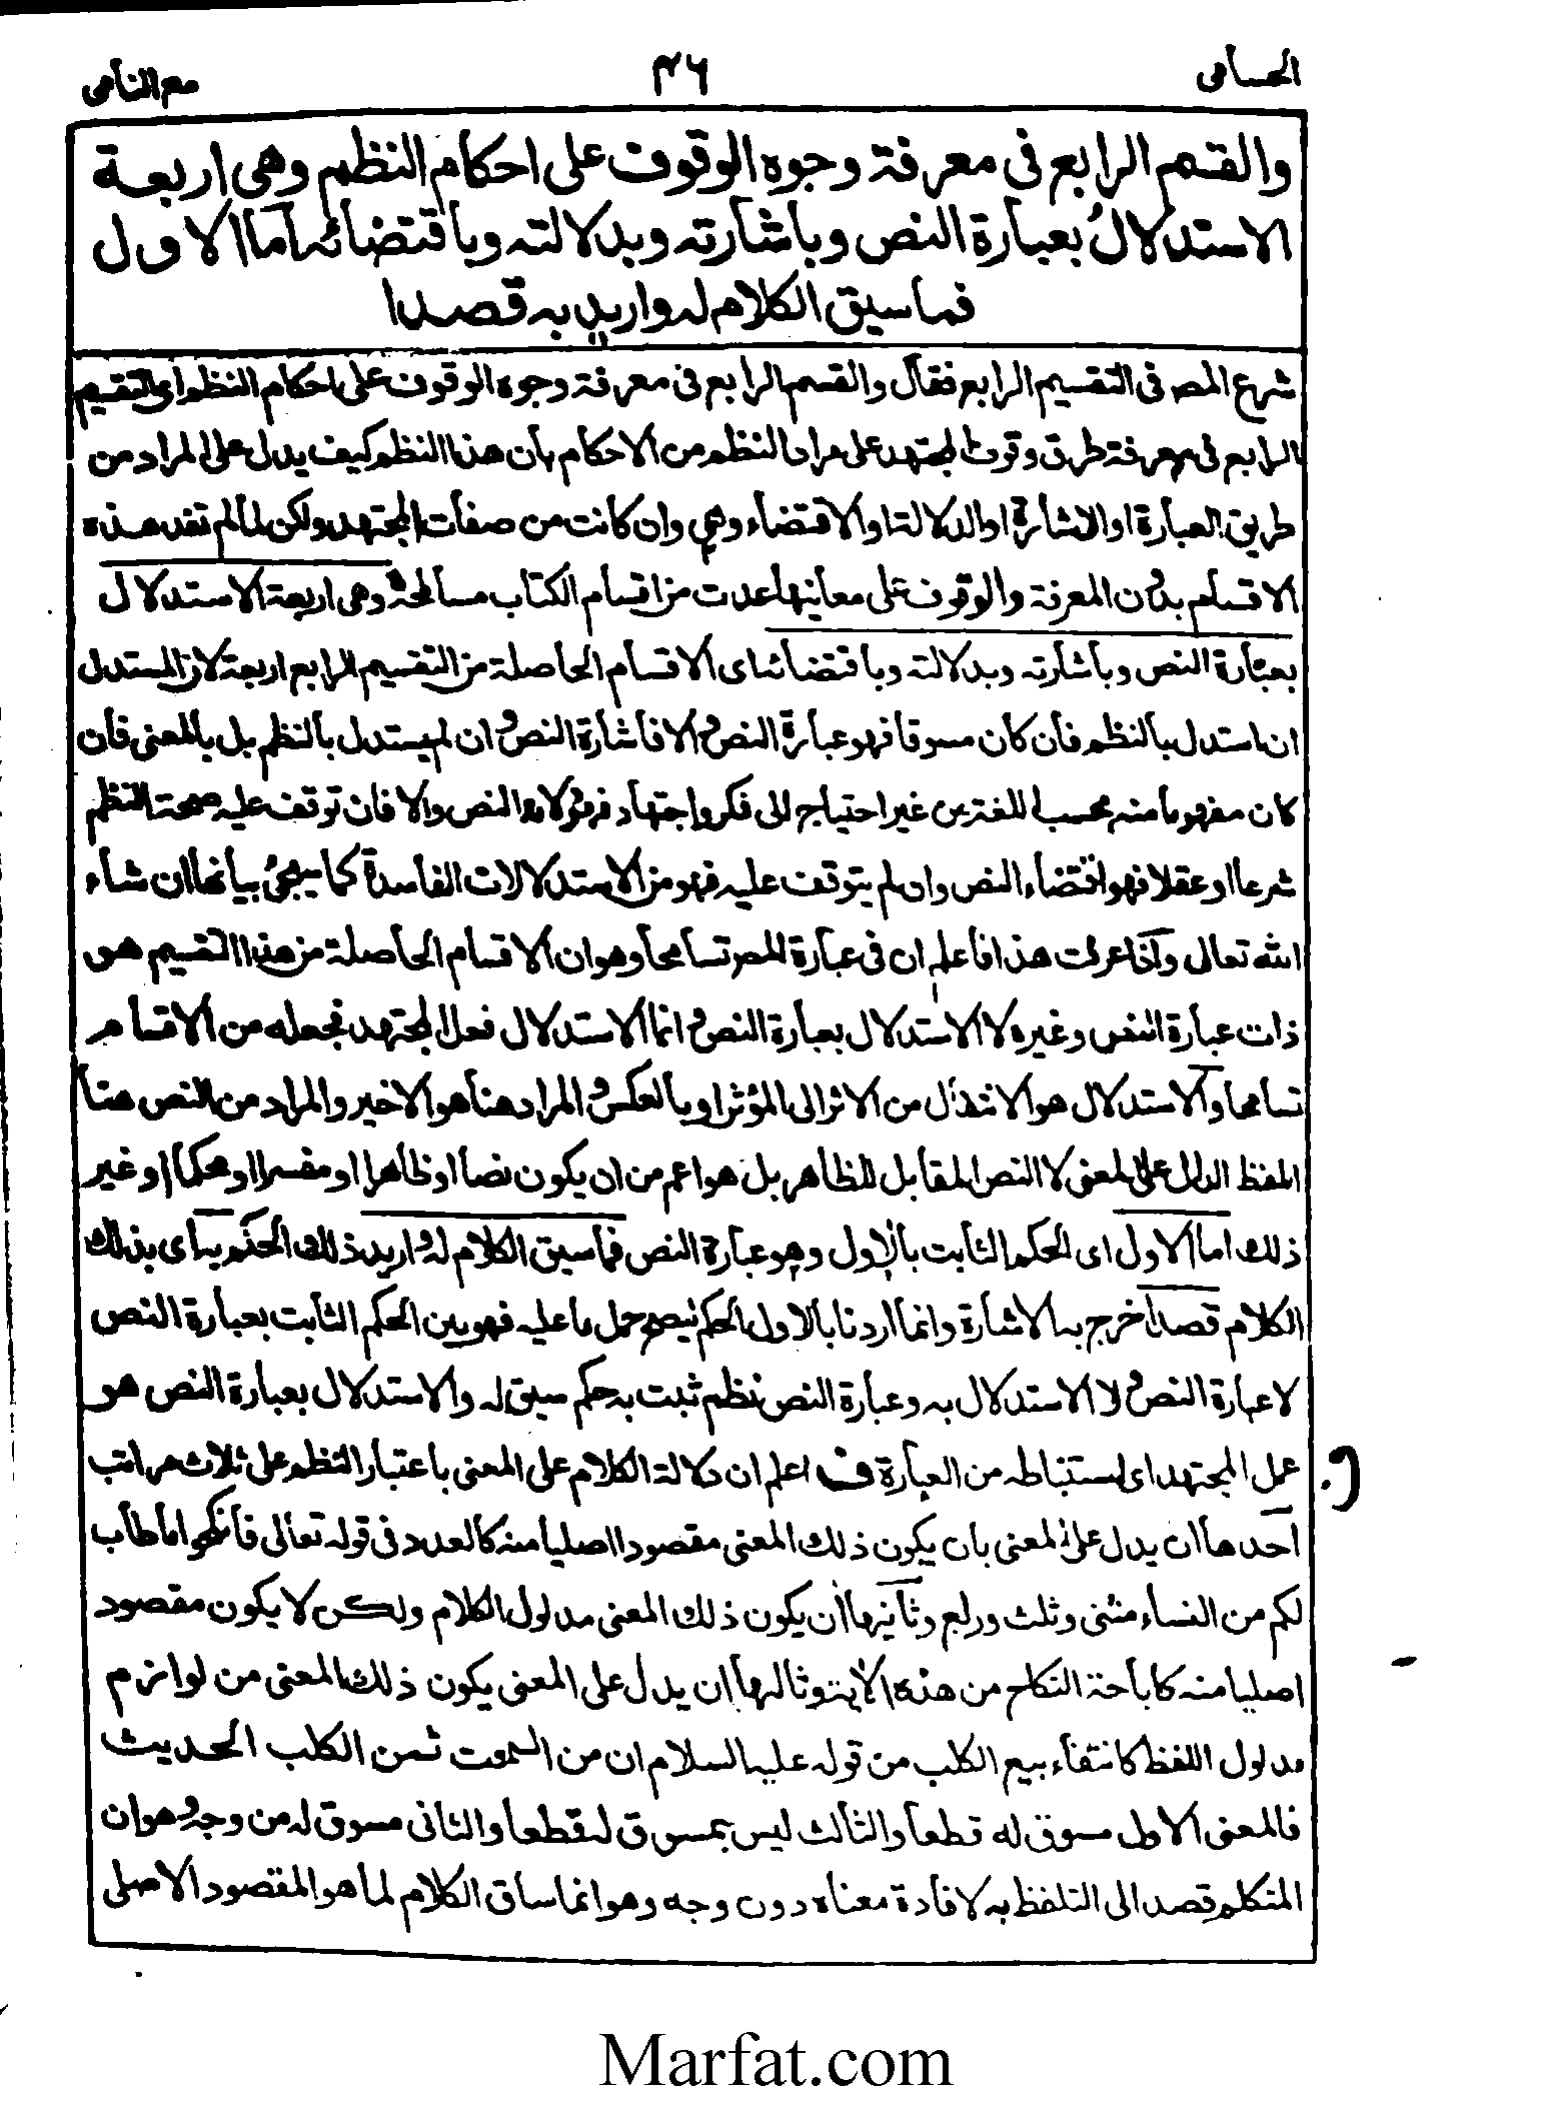 الحسامی
۴۶
مع النامی
والقسم الرابع فی معرفة وجوه الوقوف علی احکام النظم وهی اربعة
الاستدلال بعبارة النص وباشارته وبدلالته وباقتضائه اما الاول
فما سیق الکلام له وارید به قصدا
شرع المصر فی التقسیم الرابع فقال والقسم الرابع فی معرفة وجوه الوقوف علی احکام النظم ای التقسیم
الرابع فی معرفة طرق وقوف المجتهد علی مراد النظم من الاحکام بان هذا النظم کیف یدل علی المراد من
طریق العبارة او الاشارة او الدلالة او الاقتضاء وهی وان کانت من صفات المجتهد ولکن لما لم تفد هذه
الاقسام بدون المعرفة والوقوف علی معانیها عدت من اقسام الکتاب مسامحة وهی اربعة الاستدلال
بعبارة النص وباشارته وبدلالته وباقتضائه ای الاقسام الحاصلة من التقسیم الرابع اربعة لان المستدل
ان استدل بالنظم فان کان مسوقا فهو عبارة النص والا فاشارة النص وان لم یستدل بالنظم بل بالمعنی فان
کان مفهوما منه بحسب اللغة من غیر احتیاج الی فکر واجتهاد فهو دلالة النص والا فان توقف علیه صحة النظم
شرعا او عقلا فهو اقتضاء النص وان لم یتوقف علیه فهو من الاستدلالات الفاسدة کما یجئ بیانها ان شاء
الله تعالی واذا عرفت هذا فاعلم ان فی عبارة المصر تسامحا وهو ان الاقسام الحاصلة من هذا التقسیم هو
ذات عبارة النص وغیره لا الاستدلال بعبارة النص وانما الاستدلال فعل المجتهد فجعله من الاقسام
تسامحا والاستدلال هو الانتقال من الاثر الی المؤثر او بالعکس والمراد هنا هو الاخیر والمراد من النص هنا
اللفظ الدال علی المعنی لا النص المقابل للظاهر بل هو اعم من ان یکون نصا او ظاهرا او مفسرا او محکما او غیر
ذلك اما الاول ای الحکم الثابت بالاول وهو عبارة النص فما سیق الکلام له وارید ذلك الحکم به ای بذلك
الکلام قصدا خرج به الاشارة وانما اردنا بالاول الحکم لیصح حمل ما علیه فهو بین الحکم الثابت بعبارة النص
لا عبارة النص ولا الاستدلال به وعبارة النص نظم ثبت به حکم سیق له والاستدلال بعبارة النص هو
عمل المجتهد ای استنباطه من العبارة ف اعلم ان دلالة الکلام علی المعنی باعتبار النظم علی ثلاث مراتب
احدها ان یدل علی المعنی بان یکون ذلك المعنی مقصودا اصلیا منه کالعدد فی قوله تعالی فانکحوا ما طاب
لکم من النساء مثنی وثلث وربع وثانیها ان یکون ذلك المعنی مدلول الکلام ولکن لا یکون مقصود
اصلیا منه کاباحة النکاح من هذه الایة وثالثها ان یدل علی المعنی یکون ذلك المعنی من لوازم
مدلول اللفظ کانتفاء بیع الکلب من قوله علیه السلام ان من السحت ثمن الکلب الحدیث
فالمعنی الاول مسوق له قطعا والثالث لیس بمسوق له قطعا والثانی مسوق له من وجه وهو ان
المتکلم قصد الی التلفظ به لافادة معناه دون وجه وهو انما ساق الکلام لما هو المقصود الاصلی
Marfat.com